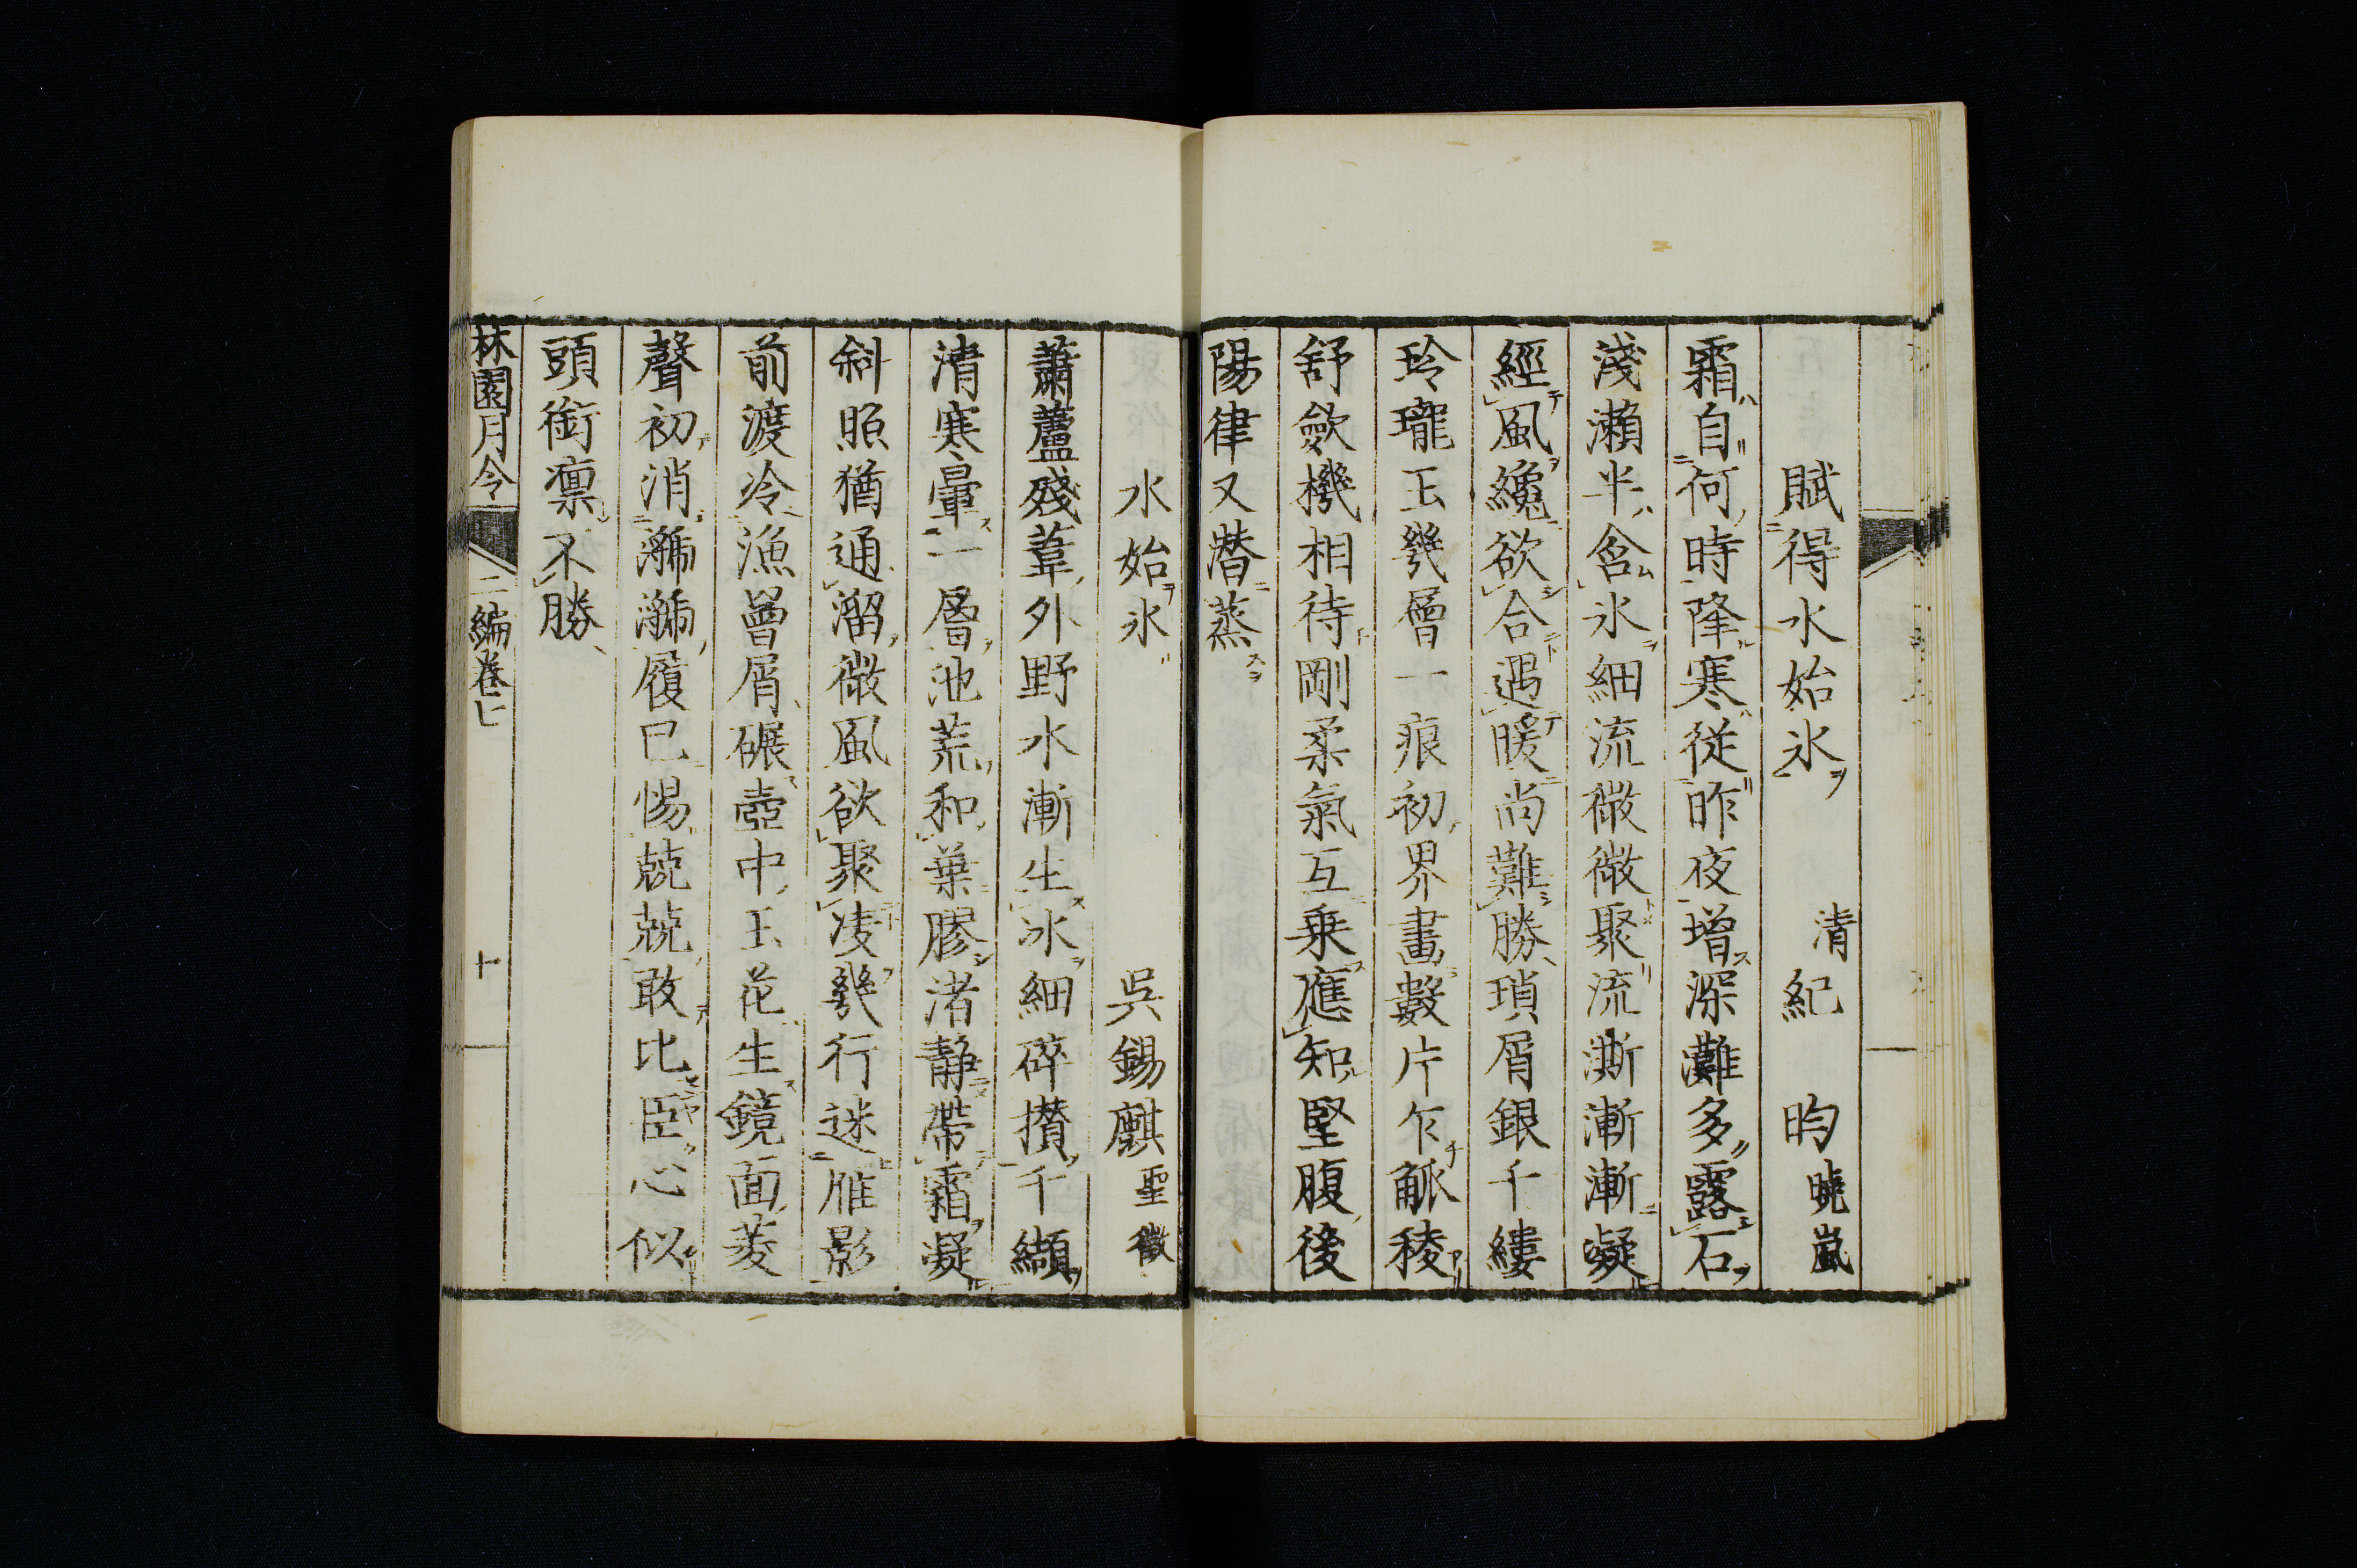 賦得水始氷　清紀　昀曉嵐
霜自何時降寒從昨夜増深灘多露石
淺瀨半含氷細流微微聚流澌漸漸凝
經風纔欲合遇暖尚難勝瑣屑銀千縷
玲瓏玉幾層一痕初界畫數片乍觚稜
舒歛機相待剛柔氣互乗應知堅腹後
陽律又潜蒸
水始氷　吳錫麒聖徵
蕭蘆殘葦外野水漸生氷細碎攢千纈
清寒暈一層池荒和葉膠渚靜帶霜凝
斜照猶通溜微風欲聚凌幾行迷雁影
前渡冷漁曾屑碾壺中玉花生鏡面菱
聲初消㶁㶁履已惕兢兢敢比臣心似
頭銜凛不勝
林園月令　二編卷七　十